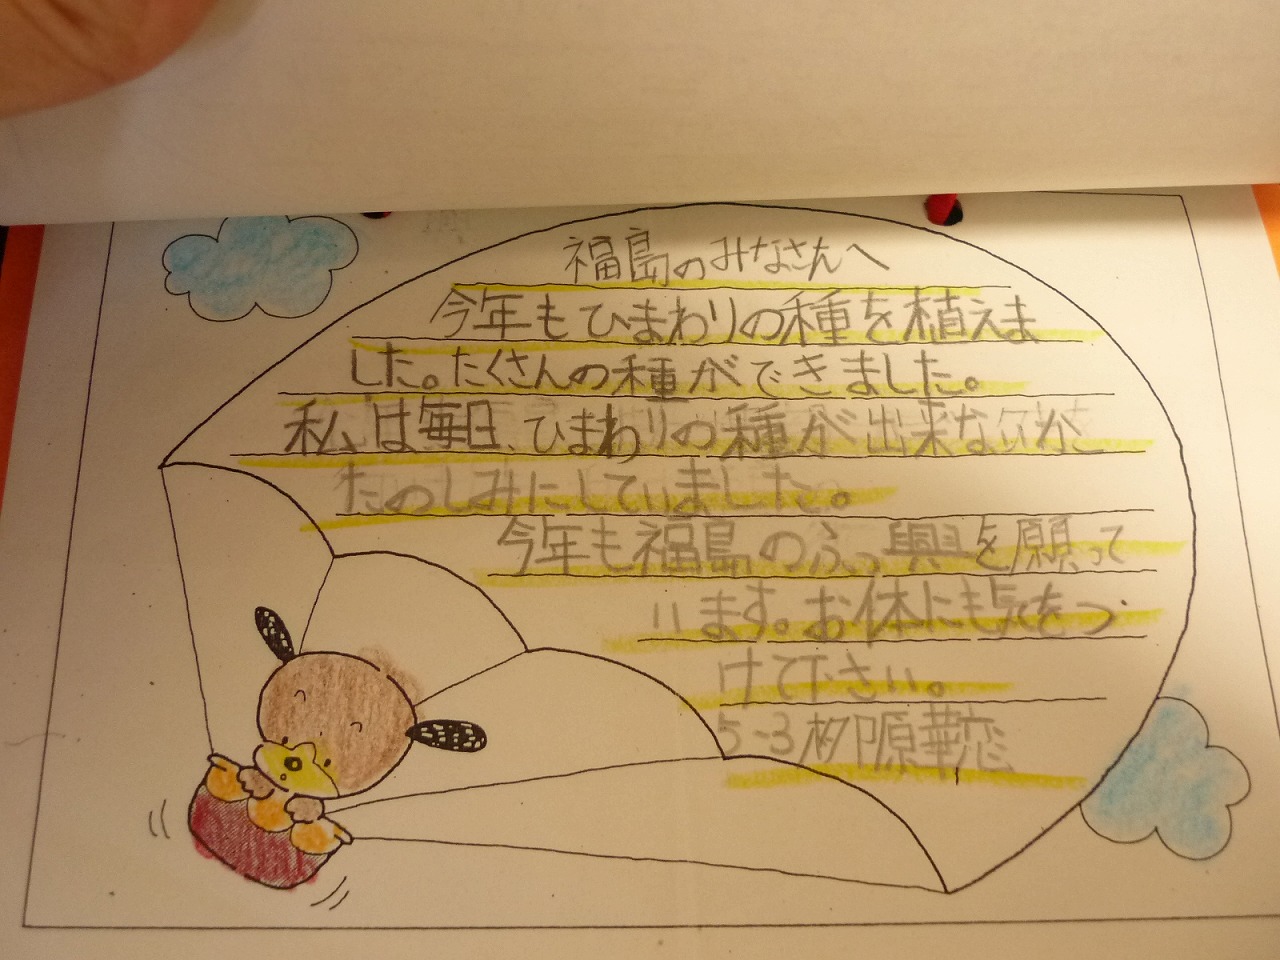 福島のみなさんへ
今年もひまわりの種を植えま
した。たくさんの種ができました。
私は毎日、ひまわりの種が出来な欠かこ
たのしみにしていました。
今年も福島のふっ興を願って
います。お体にも気をつ
けて下さい。
5-3 柳原華恋